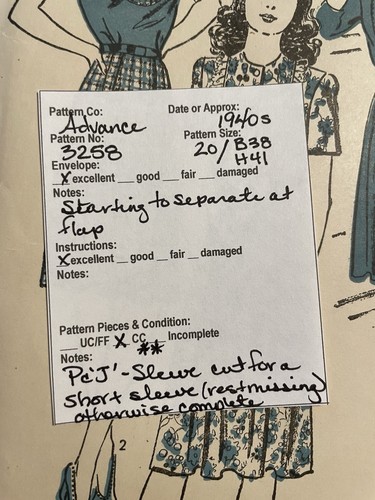 Pattern Co: Date or Approx:
Advance 1940s
Pattern No: Pattern Size:
3258 20/B38
H41
Envelope:
X excellent __ good __ fair __ damaged
Notes:
Starting to separate at
flap
Instructions:
X excellent __ good __ fair __ damaged
Notes:
Pattern Pieces & Condition:
__ UC/FF X CC __ Incomplete
**
Notes:
Pc 'J' - Sleeve cut for a
short sleeve (rest missing)
otherwise complete
2